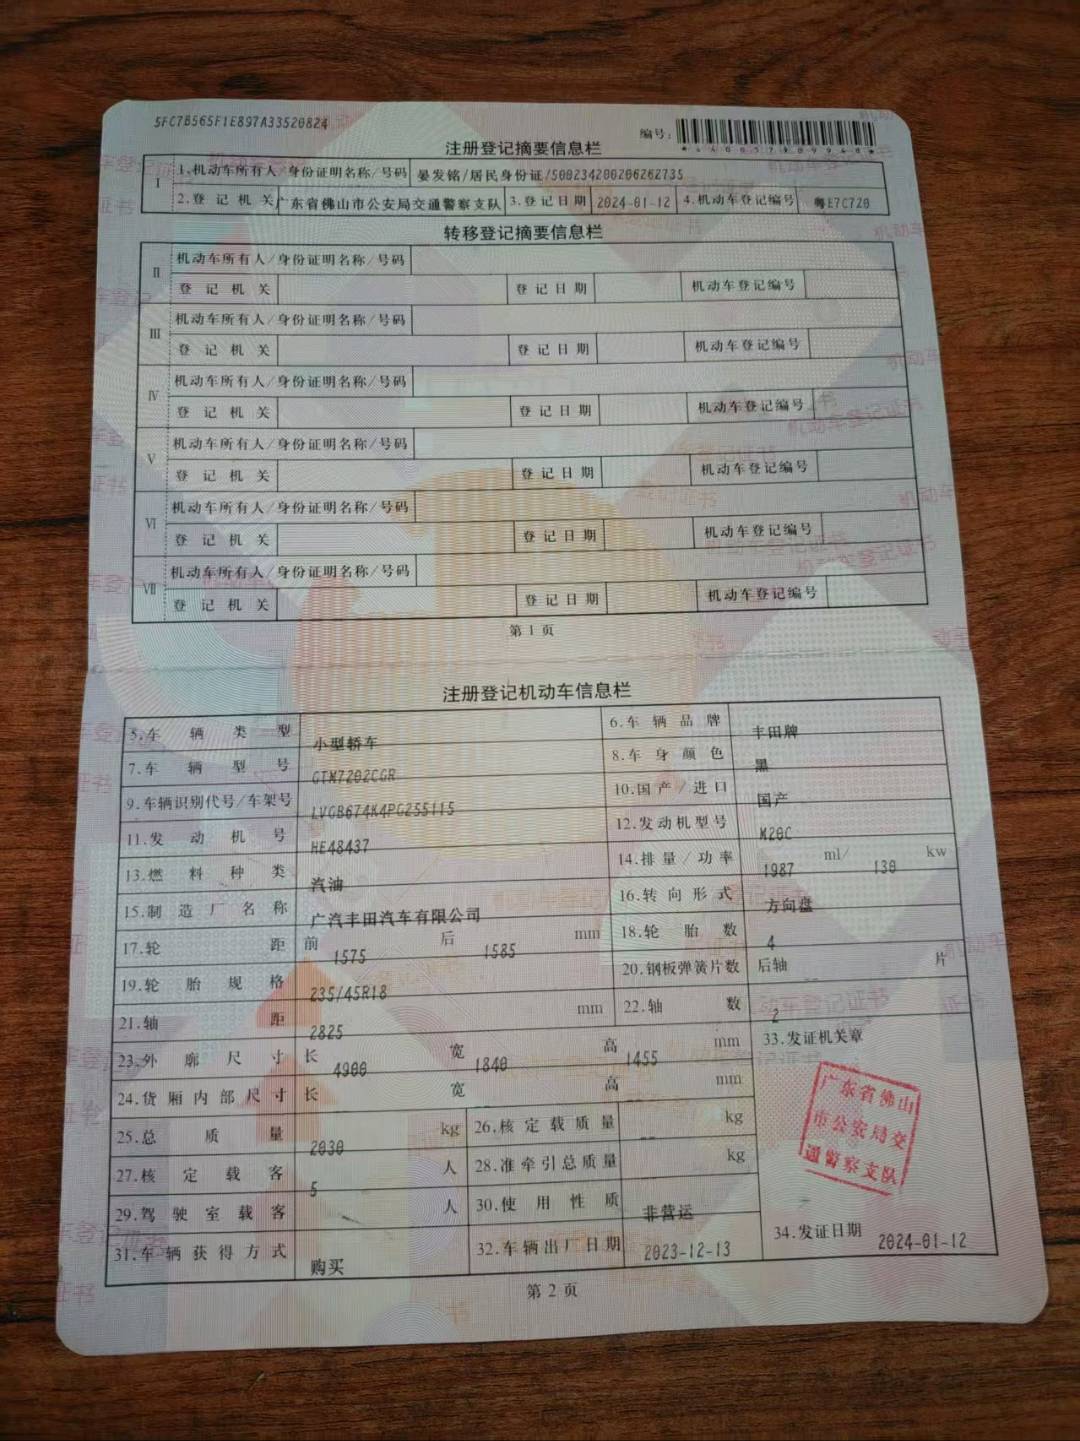 5FC7B565F1E897A33520824
编号:
注册登记摘要信息栏
I
1.机动车所有人/身份证明名称/号码 晏发铭/居民身份证/500234200206262735
2.登记机关 广东省佛山市公安局交通警察支队 3.登记日期 2024-01-12 4.机动车登记编号 粤E7C720
转移登记摘要信息栏
II
机动车所有人/身份证明名称/号码
登记机关 登记日期 机动车登记编号
III
机动车所有人/身份证明名称/号码
登记机关 登记日期 机动车登记编号
IV
机动车所有人/身份证明名称/号码
登记机关 登记日期 机动车登记编号
V
机动车所有人/身份证明名称/号码
登记机关 登记日期 机动车登记编号
VI
机动车所有人/身份证明名称/号码
登记机关 登记日期 机动车登记编号
VII
机动车所有人/身份证明名称/号码
登记机关 登记日期 机动车登记编号
第1页
注册登记机动车信息栏
5.车辆类型 小型轿车 6.车辆品牌 丰田牌
7.车辆型号 GTM7202CGR 8.车身颜色 黑
9.车辆识别代号/车架号 LVGB674K4PG255115 10.国产/进口 国产
11.发动机号 HE48437 12.发动机型号 M20C
13.燃料种类 汽油 14.排量/功率 1987 ml/ 130 kw
15.制造厂名称 广汽丰田汽车有限公司 16.转向形式 方向盘
17.轮距 前 1575 后 1585 mm 18.轮胎数 4
19.轮胎规格 235/45R18 20.钢板弹簧片数 后轴 -- 片
21.轴距 2825 mm 22.轴数 2
23.外廓尺寸 长 4900 宽 1840 高 1455 mm 33.发证机关章
24.货厢内部尺寸 长 宽 高 mm
25.总质量 2030 kg 26.核定载质量 -- kg
27.核定载客 5 人 28.准牵引总质量 -- kg
29.驾驶室载客 -- 人 30.使用性质 非营运
31.车辆获得方式 购买 32.车辆出厂日期 2023-12-13 34.发证日期 2024-01-12
广东省佛山
市公安局交
通警察支队
第2页